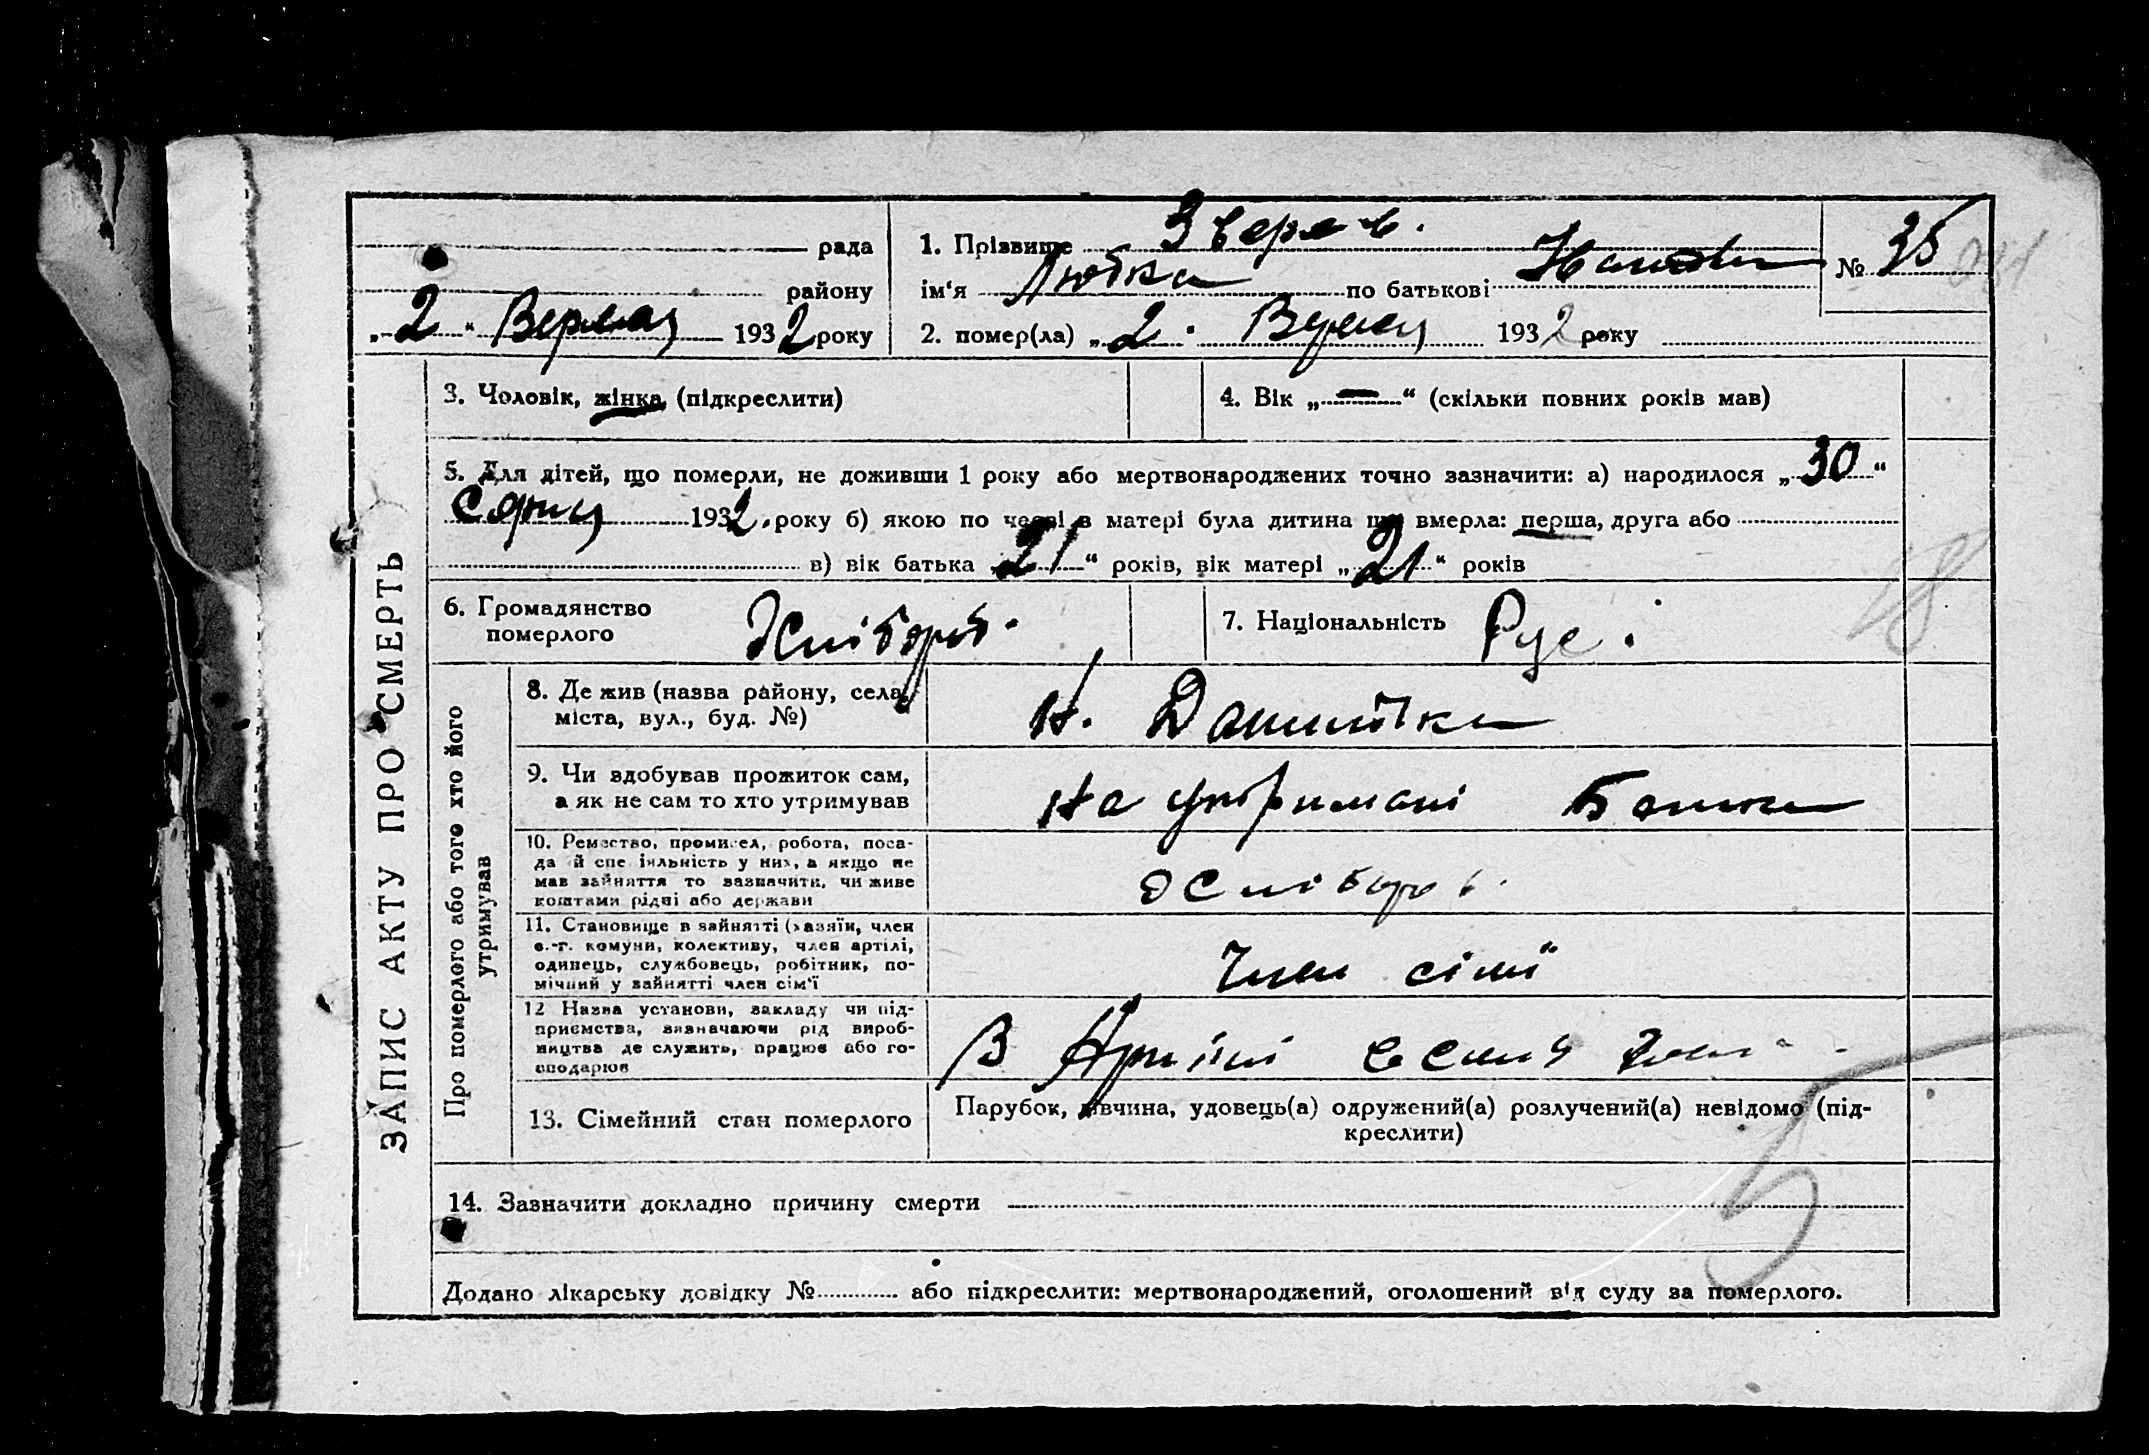 рада
району
„2“ Вересня 1932 року
1. Прізвище Зверев.
ім‘я Любка по батькові
№ 35
2. помер(ла) „2“ 1932 року
ЗАПИС АКТУ ПРО СМЕРТЬ
3. Чоловік, жінка (підкреслити)
4. Вік „—“ (скільки повних років мав)
5. Для дітей, що померли, не доживши 1 року або мертвонароджених точно зазначити: а) народилося „30“
Серпня 1932. року б) якою по черзі в матері була дитина що вмерла: перша, друга або
в) вік батька „21“ років, вік матері „21“ років
6. Громадянство
померлого
7. Національність Рус.
Про померлого або того хто його
утримував
8. Де жив (назва району, села,
міста, вул., буд. №)
Н. Данилівка
9. Чи здобував прожиток сам,
а як не сам то хто утримував
На утримані Батька
10. Ремество, промисел, робота, поса-
да й спеціяльність у них, а якщо не
мав зайняття то зазначити, чи живе
коштами рідні або держави
11. Становище в зайнятті (хазяїн, член
с.-г. комуни, колективу, член артілі,
одинець, службовець, робітник, по-
мічний у зайнятті член сім‘ї
Член сімї
12 Назва установи, закладу чи під-
приємства, зазначаючи рід вироб-
ництва де служить, працює або го-
сподарює
В
13. Сімейний стан померлого
Парубок, дівчина, удовець(а) одружений(а) розлучений(а) невідомо (під-
креслити)
5
14. Зазначити докладно причину смерти
Додано лікарську довідку № або підкреслити: мертвонароджений, оголошений від суду за померлого.